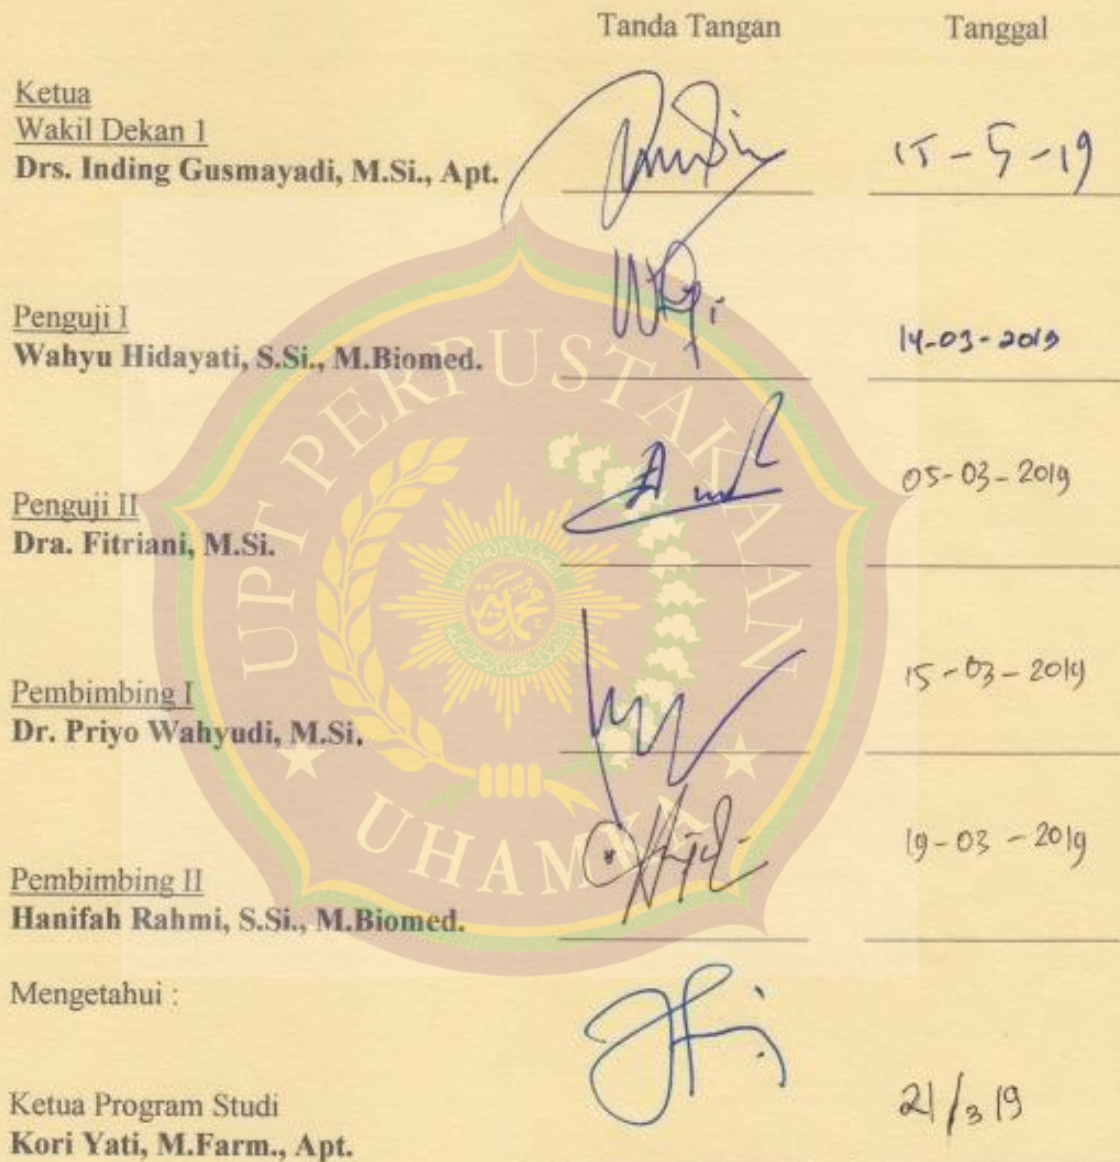 Tanda Tangan Tanggal
Ketua
Wakil Dekan 1
Drs. Inding Gusmayadi, M.Si., Apt.
15 - 5 - 19
Penguji I
Wahyu Hidayati, S.Si., M.Biomed.
14-03-2019
Penguji II
Dra. Fitriani, M.Si.
05-03-2019
Pembimbing I
Dr. Priyo Wahyudi, M.Si.
15-03-2019
Pembimbing II
Hanifah Rahmi, S.Si., M.Biomed.
19-03-2019
Mengetahui :
Ketua Program Studi
Kori Yati, M.Farm., Apt.
21/3 19
UPT PERPUSTAKAAN
UHAMKA